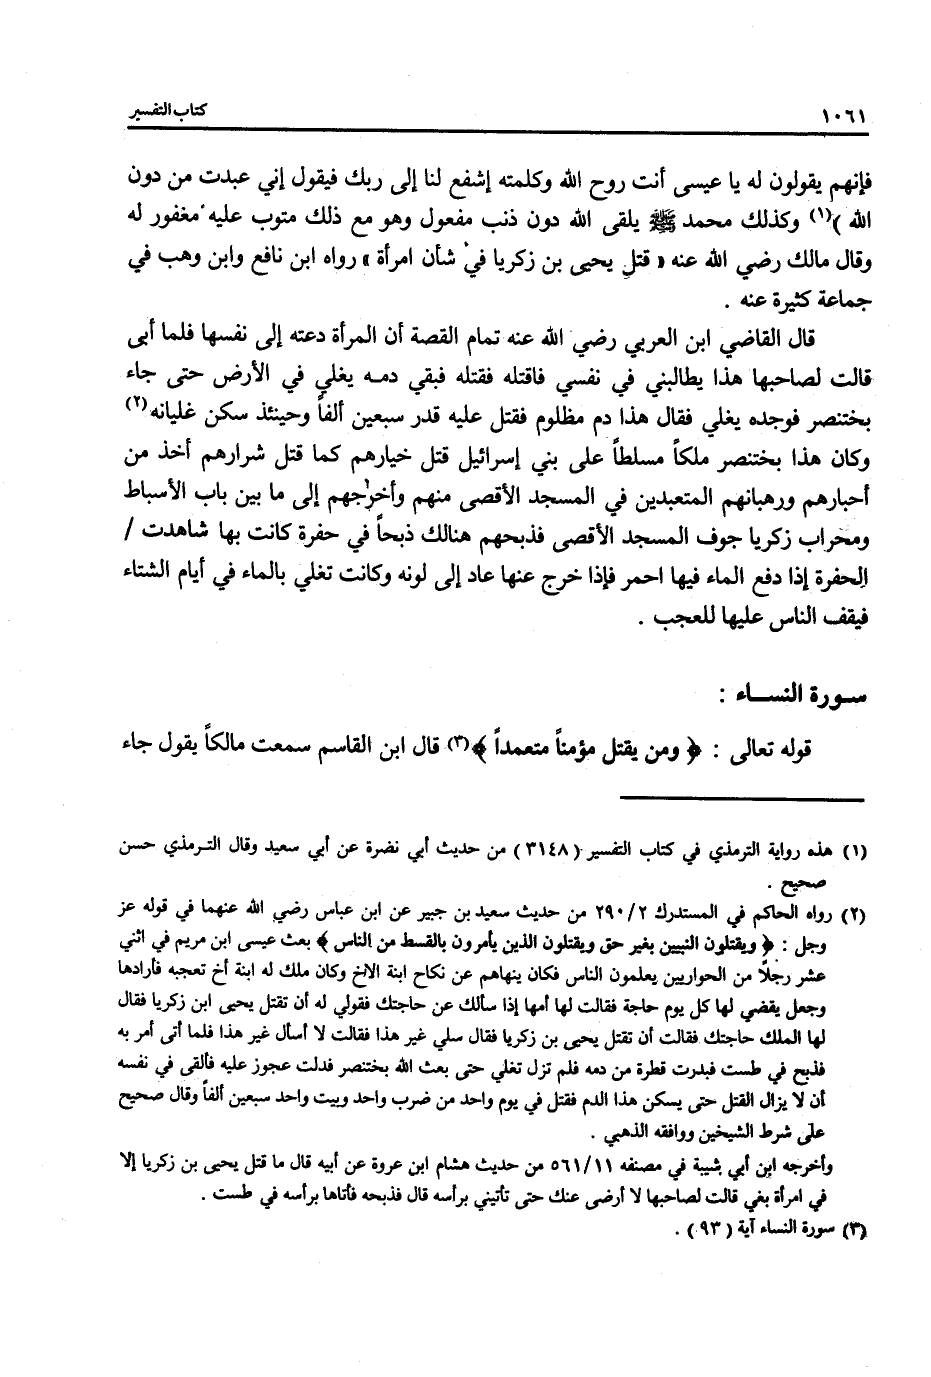 ١٠٦١ كتاب التفسير
فإنهم يقولون له يا عيسى أنت روح الله وكلمته إشفع لنا إلى ربك فيقول إني عبدت من دون
الله )(١) وكذلك محمد ﷺ يلقى الله دون ذنب مفعول وهو مع ذلك متوب عليه مغفور له
وقال مالك رضي الله عنه « قتل يحيى بن زكريا في شأن امرأة » رواه ابن نافع وابن وهب في
جماعة كثيرة عنه .
قال القاضي ابن العربي رضي الله عنه تمام القصة أن المرأة دعته إلى نفسها فلما أبى
قالت لصاحبها هذا يطالبني في نفسي فاقتله فقتله فبقي دمه يغلي في الأرض حتى جاء
بختنصر فوجده يغلي فقال هذا دم مظلوم فقتل عليه قدر سبعين ألفاً وحينئذ سكن غليانه(٢)
وكان هذا بختنصر ملكاً مسلطاً على بني إسرائيل قتل خيارهم كما قتل شرارهم أخذ من
أحبارهم ورهبانهم المتعبدين في المسجد الأقصى منهم وأخرجهم إلى ما بين باب الأسباط
ومحراب زكريا جوف المسجد الأقصى فذبحهم هنالك ذبحاً في حفرة كانت بها شاهدت /
الحفرة إذا دفع الماء فيها احمر فإذا خرج عنها عاد إلى لونه وكانت تغلي بالماء في أيام الشتاء
فيقف الناس عليها للعجب .
سورة النساء :
قوله تعالى : ﴿ ومن يقتل مؤمناً متعمداً ﴾(٣) قال ابن القاسم سمعت مالكاً يقول جاء
(١) هذه رواية الترمذي في كتاب التفسير (٣١٤٨) من حديث أبي نضرة عن أبي سعيد وقال الترمذي حسن
صحيح .
(٢) رواه الحاكم في المستدرك ٢٩٠/٢ من حديث سعيد بن جبير عن ابن عباس رضي الله عنهما في قوله عز
وجل : ﴿ ويقتلون النبيين بغير حق ويقتلون الذين يأمرون بالقسط من الناس ﴾ بعث عيسى ابن مريم في اثني
عشر رجلاً من الحواريين يعلمون الناس فكان ينهاهم عن نكاح ابنة الاخ وكان ملك له ابنة أخ تعجبه فأرادها
وجعل يقضي لها كل يوم حاجة فقالت لها أمها إذا سألك عن حاجتك فقولي له أن تقتل يحيى ابن زكريا فقال
لها الملك حاجتك فقالت أن تقتل يحيى بن زكريا فقال سلي غير هذا فقالت لا أسأل غير هذا فلما أتى أمر به
فذبح في طست فبدرت قطرة من دمه فلم تزل تغلي حتى بعث الله بختنصر فدلت عجوز عليه فألقى في نفسه
أن لا يزال القتل حتى يسكن هذا الدم فقتل في يوم واحد من ضرب واحد وبيت واحد سبعين ألفاً وقال صحيح
على شرط الشيخين ووافقه الذهبي .
وأخرجه ابن أبي شيبة في مصنفه ٥٦١/١١ من حديث هشام ابن عروة عن أبيه قال ما قتل يحيى بن زكريا إلا
في امرأة بغي قالت لصاحبها لا أرضى عنك حتى تأتيني برأسه قال فذبحه فأتاها برأسه في طست .
(٣) سورة النساء آية (٩٣) .